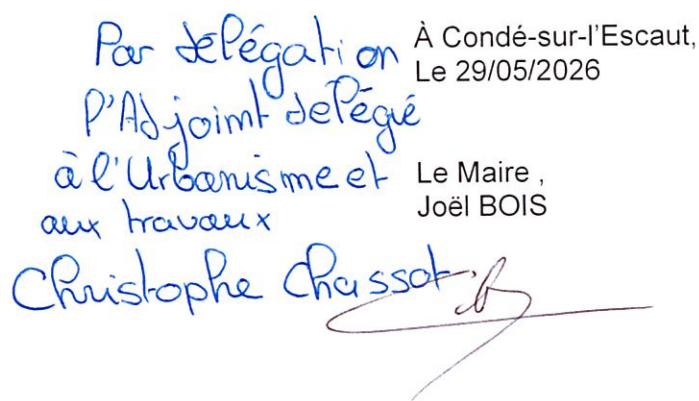 Par délégation
l'Adjoint délégué
à l'Urbanisme et
aux travaux
Christophe Chassot
À Condé-sur-l'Escaut,
Le 29/05/2026
Le Maire ,
Joël BOIS